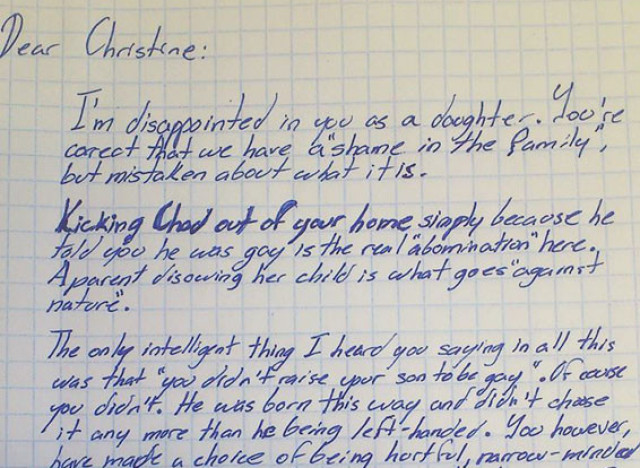 Dear Christine:
I'm disappointed in you as a daughter. You're
corect that we have a "shame in the family",
but mistaken about what it is.
Kicking Chad out of your home simply because he
told you he was gay is the real "abomination" here.
A parent disowing her child is what goes "against
nature".
The only intelligent thing I heard you saying in all this
was that "you didn't raise your son to be gay". Of couse
you didn't. He was born this way and didn't choose
it any more than he being left-handed. You however,
have made a choice of being hurtful, narrow-minded